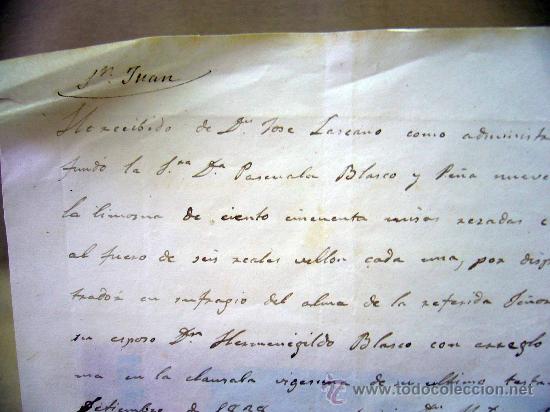 Sn. Juan
He recibido de Dn. Jose Lazcano como administra
fundó la Sra. Da. Pascuala Blasco y Peña nueve
la limosna de ciento cincuenta misas rezadas
al fuero de seis reales vellon cada una, por disp
trador en sufragio del alma de la referida Señor
su esposo Dn. Hermenegildo Blasco con arreglo
ma en la clausula vigesima de su ultimo testa
Setiembre de
www.todocoleccion.net